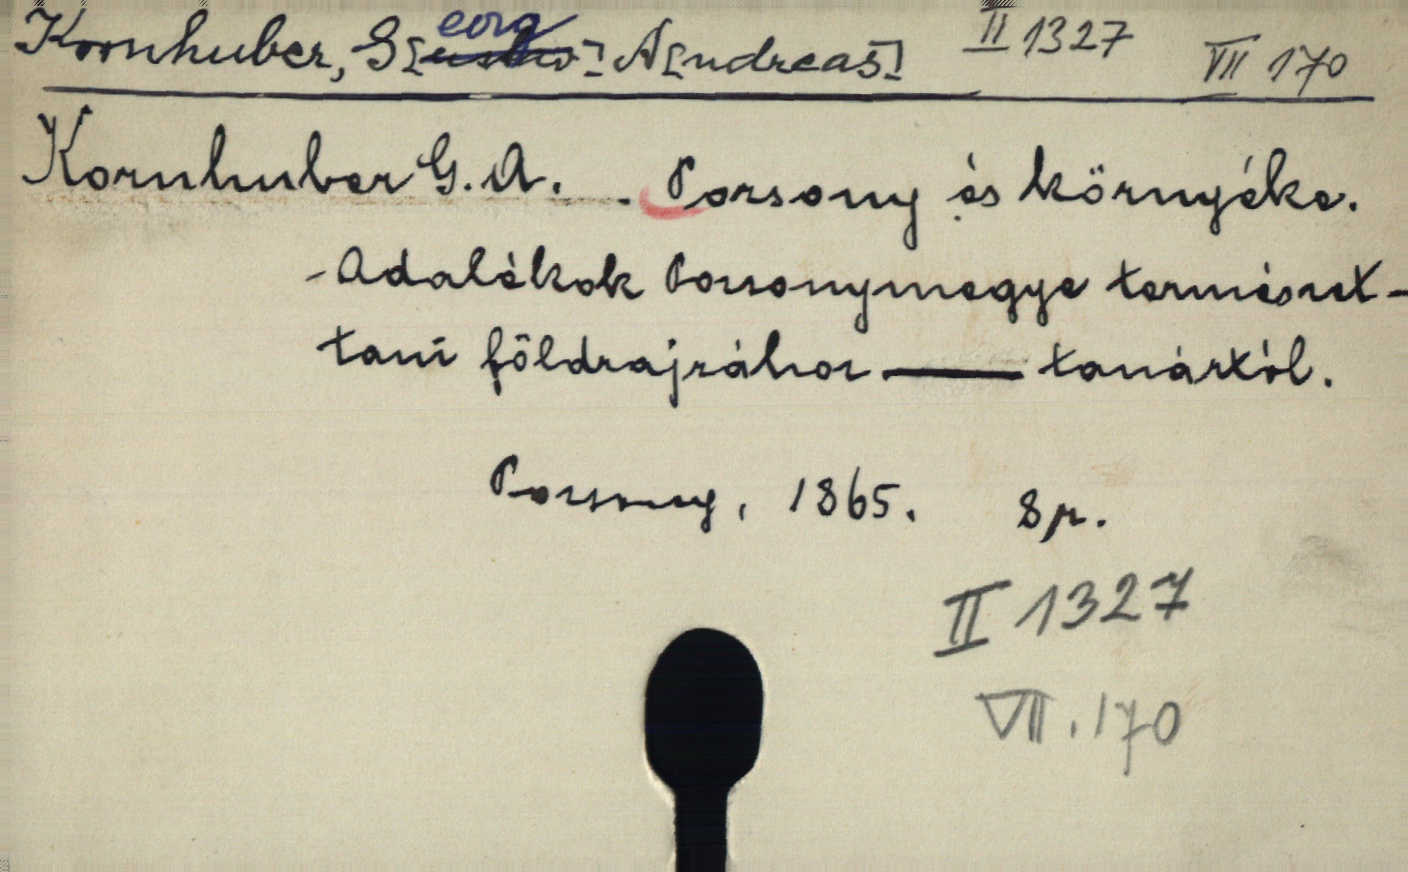 Kornhuber, G[eorg] A[ndreas] II 1327 VII 170
Kornhuber G. A. . Pozsony és környéke.
-Adalékok Pozsonymegye természet-
tani földrajzához —— tanártól.
Pozsony, 1865. 8r.
II 1327
VII. 170